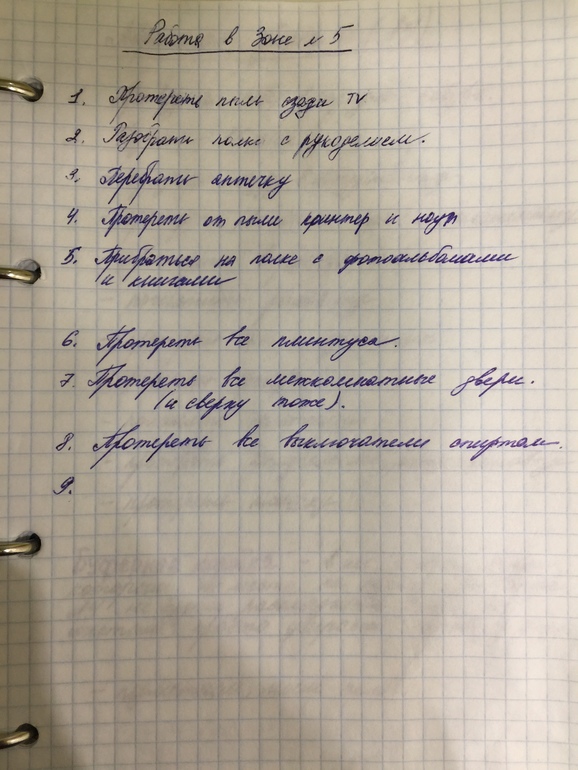 Работа в Зоне № 5
1. Протереть пыль сзади TV
2. Разобрать полки с рукоделием.
3. Перебрать аптечку
4. Протереть от пыли принтер и ноут
5. Прибраться на полке с фотоальбомами
и книгами
6. Протереть все плинтуса.
7. Протереть все межкомнатные двери.
(и сверху тоже).
8. Протереть все выключатели спиртом.
9.